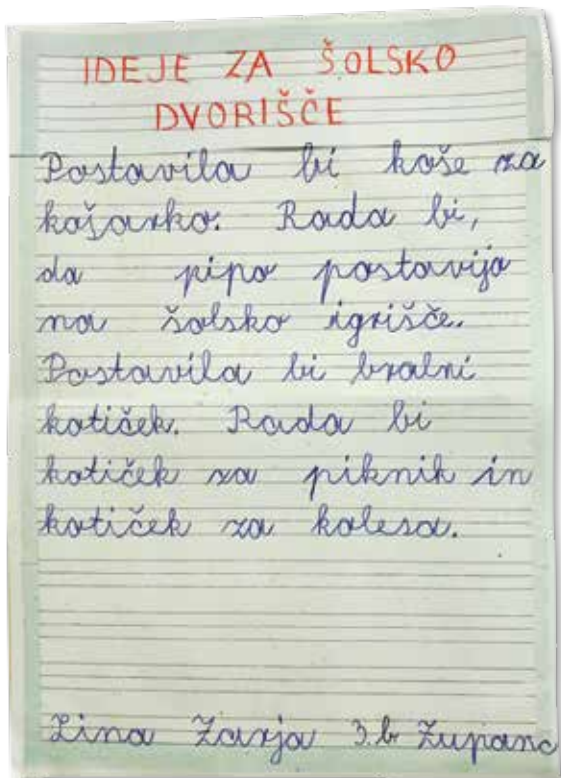 IDEJE ZA ŠOLSKO
DVORIŠČE
Postavila bi koše za
košarko. Rada bi,
da pipo postavijo
na šolsko igrišče.
Postavila bi bralni
kotiček. Rada bi
kotiček za piknik in
kotiček za kolesa.
Lina Zarja 3.b Zupanc